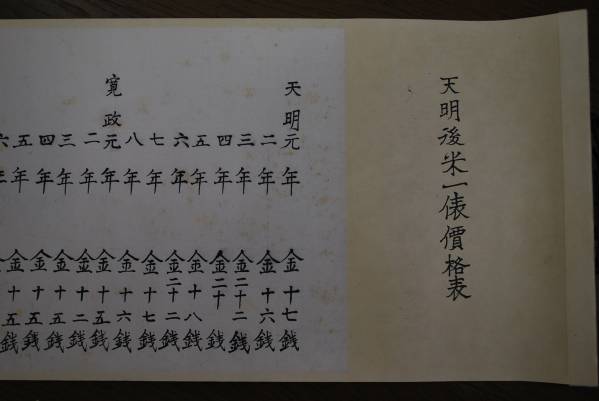 天明後米一俵價格表
天明元年 金十七銭
二年 金十六銭
三年 金二十二銭
四年 金二十銭
五年 金十八銭
六年 金二十二銭
七年 金十七銭
八年 金十六銭
寛政元年 金十五銭
二年 金十二銭
三年 金十五銭
四年 金十五銭
五年 金十五銭
六年